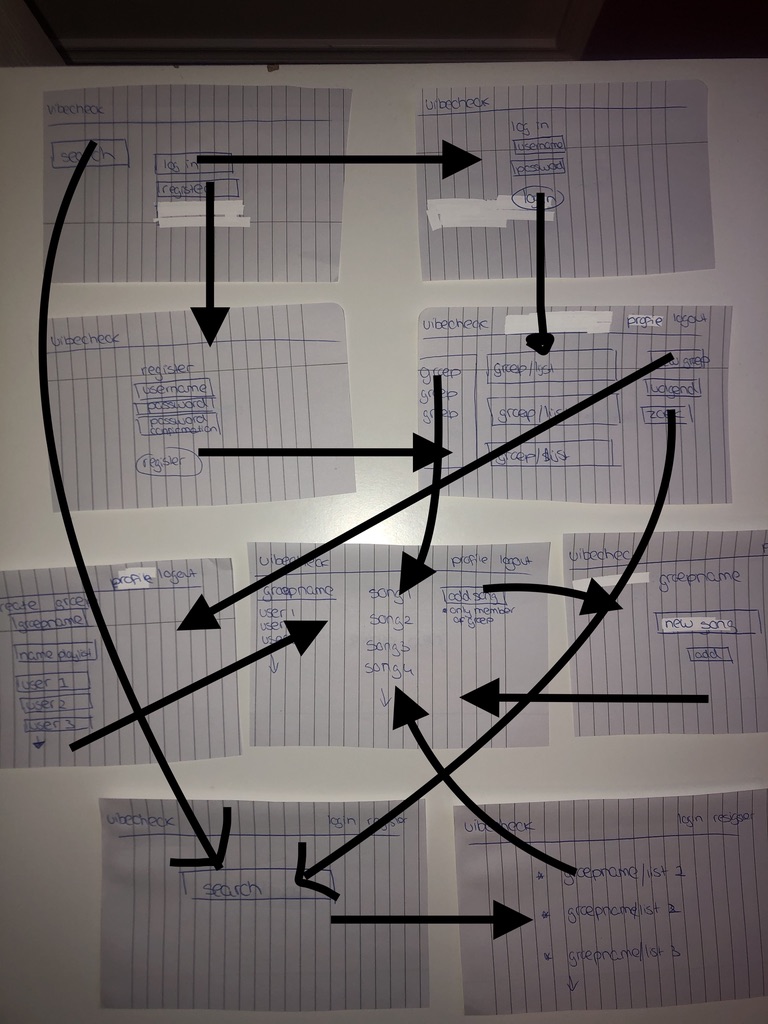 vibecheck
search
log in
register
vibecheck
log in
username
password
login
vibecheck
register
username
password
password
confirmation
register
vibecheck
profile logout
groep
groep
groep
groep/list
groep/list
groep/list
profile logout
groepname
name playlist
user 1
user 2
user 3
vibecheck
profile logout
groepname
user 1
user
song
song2
song3
song4
add song
*only member
of groep
groepname
new song
add
vibecheck
login
search
vibecheck
login
* groepname/list 1
* groepname/list 2
* groepname/list 3